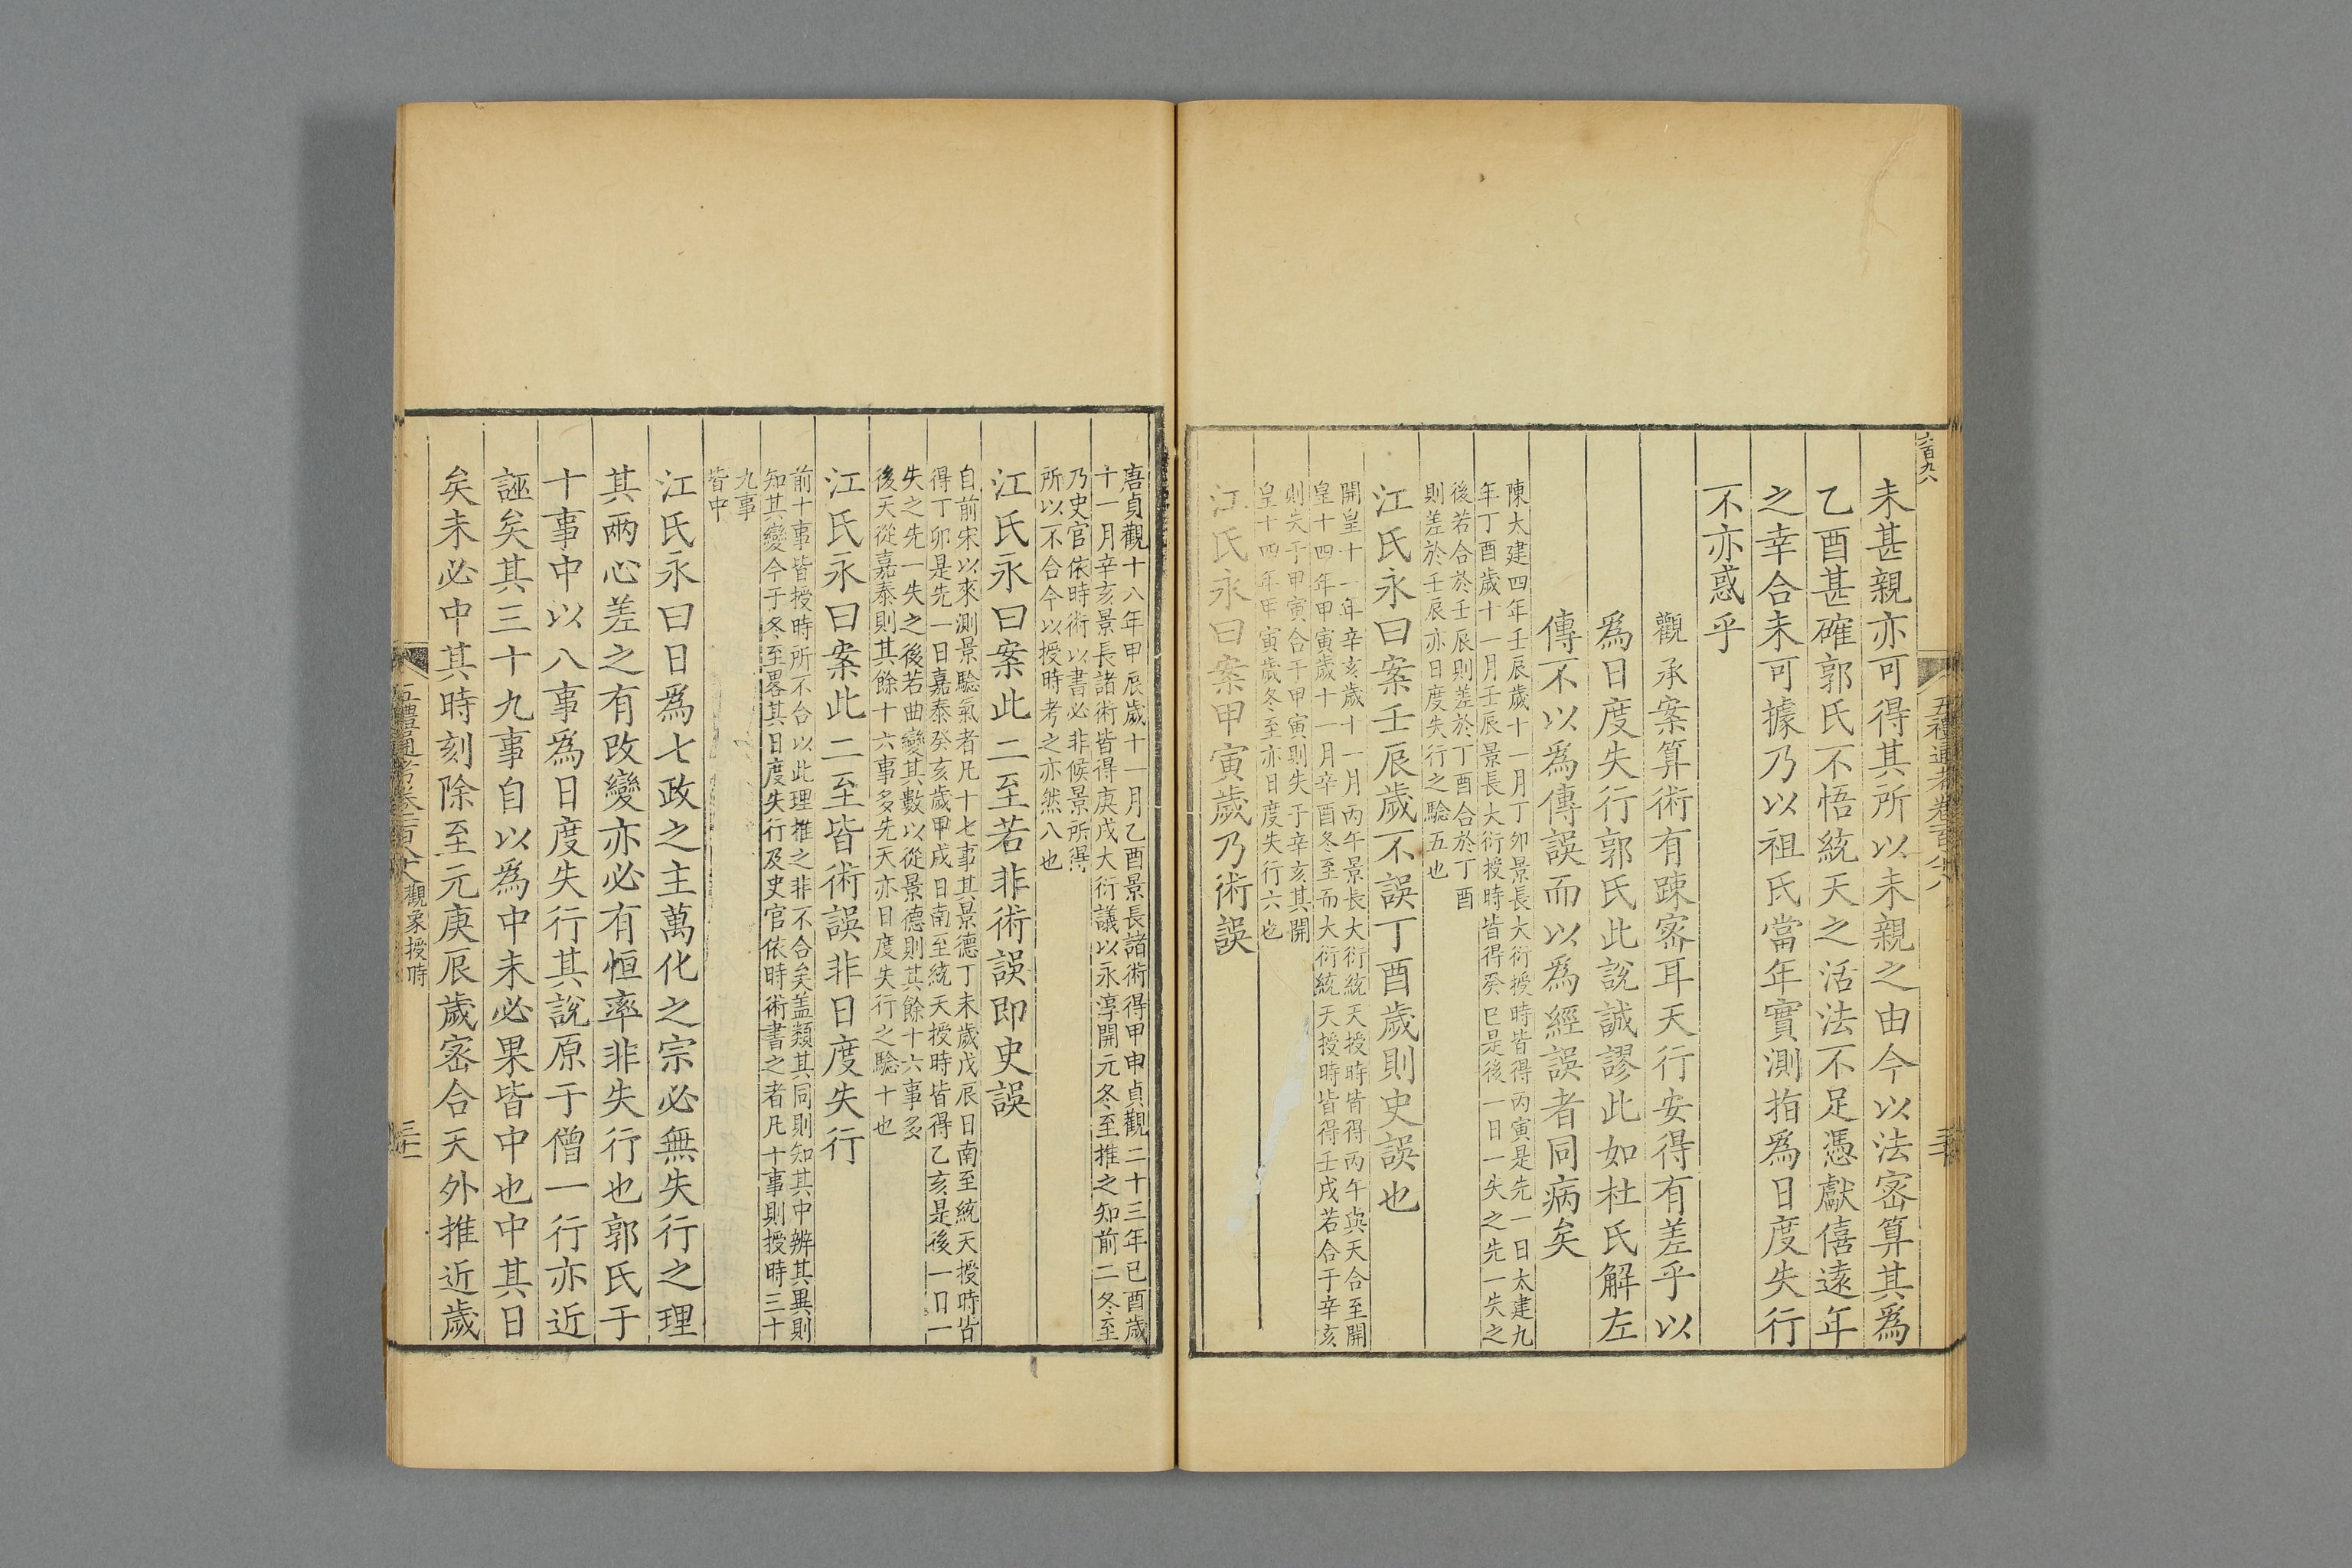 六百九八
未甚親亦可得其所以未親之由今以法宻算其爲
乙酉甚確郭氏不悟統天之活法不足憑獻僖逺年
之幸合未可據乃以祖氏當年實測指爲日度失行
不亦惑乎
觀承案算術有踈宻耳天行安得有差乎以
爲日度失行郭氏此說誠謬此如杜氏解左
傳不以爲傳誤而以爲經誤者同病矣
陳大建四年壬辰歲十一月丁卯景長大衍授時皆得丙寅是先一日太建九
年丁酉歲十一月壬辰景長大衍授時皆得癸巳是後一日一失之先一失之
後若合於壬辰則差於丁酉合於丁酉
則差於壬辰亦日度失行之驗五也
江氏永曰案壬辰歲不誤丁酉歲則史誤也
開皇十一年辛亥歲十一月丙午景長大衍統天授時皆得丙午與天合至開
皇十四年甲寅歲十一月辛酉冬至而大衍統天授時皆得壬戌若合于辛亥
則失于甲寅合于甲寅則失于辛亥其開
皇十四年甲寅歲冬至亦日度失行六也
江氏永曰案甲寅歲乃術誤
五禮通考卷百八八
三十
唐貞觀十八年甲辰歲十一月乙酉景長諸術得甲申貞觀二十三年已酉歲
十一月辛亥景長諸術皆得庚戌大衍議以永淳開元冬至推之知前二冬至
乃史官依時術以書必非候景所得
所以不合今以授時考之亦然八也
江氏永曰案此二至若非術誤即史誤
自前宋以來測景驗氣者凡十七事其景德丁未歲戊辰日南至統天授時皆
得丁卯是先一日嘉泰癸亥歲甲戌日南至統天授時皆得乙亥是後一日一
失之先一失之後若曲變其數以從景德則其餘十六事多
後天從嘉泰則其餘十六事多先天亦日度失行之驗十也
江氏永曰案此二至皆術誤非日度失行
前十事皆授時所不合以此理推之非不合矣盖類其同則知其中辨其異則
知其變今于冬至畧其日度失行及史官依時術書之者凡十事則授時三十
九事
皆中
江氏永曰日爲七政之主萬化之宗必無失行之理
其兩心差之有改變亦必有恒率非失行也郭氏于
十事中以八事爲日度失行其說原于僧一行亦近
誣矣其三十九事自以爲中未必果皆中也中其日
矣未必中其時刻除至元庚辰歲宻合天外推近歲
觀象授時